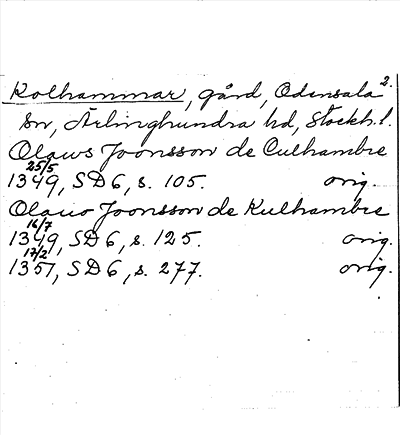 2.
Kolhammar, gård, Odensala
sn, Ärlinghundra hd, Stockh.l.
Olaws Joonsson de Culhambre
25/5
1349, SD 6, s. 105. orig.
Olauo Joonsson de Kulhambre
16/7
1349, SD 6, s. 125. orig.
17/2
1351, SD 6, s. 277. orig.